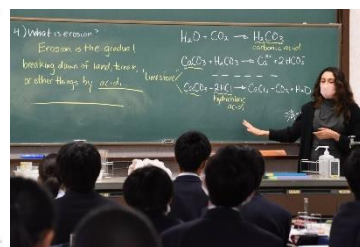 4.) What is erosion?
Erosion is the gradual
breaking down of land, terrain,
or other things by acid.
H₂O + CO₂ → H₂CO₃
carbonic acid
CaCO₃ + H₂CO₃ → Ca²⁺ + 2HCO₃⁻
"Limestone"
CaCO₃ + 2HCl → CaCl₂ + CO₂ + H₂O
hydrochloric
acid